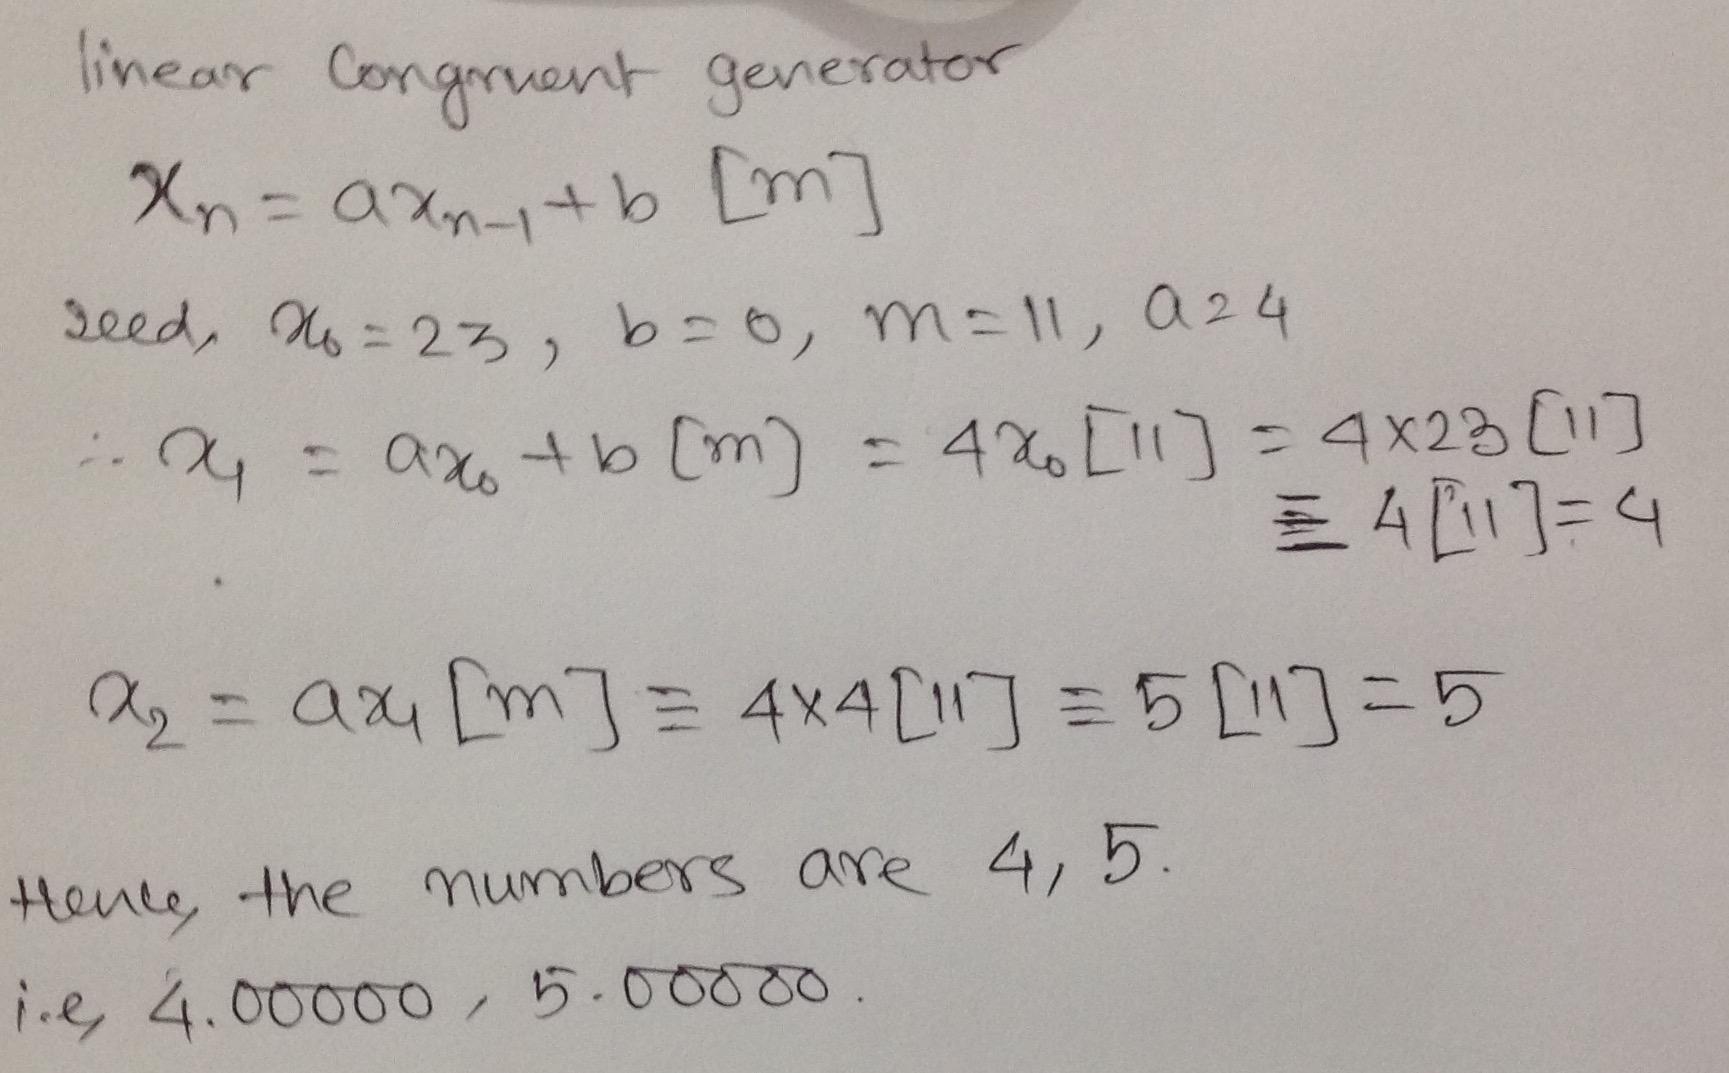 linear Congruent generator
Xn = axn-1 + b [m]
seed, x0 = 23, b = 0, m = 11, a = 4
∴ x1 = ax0 + b [m] = 4x0 [11] = 4×23 [11]
≡ 4 [11] = 4
x2 = ax1 [m] ≡ 4×4 [11] ≡ 5 [11] = 5
Hence, the numbers are 4, 5.
i.e, 4.00000, 5.00000.